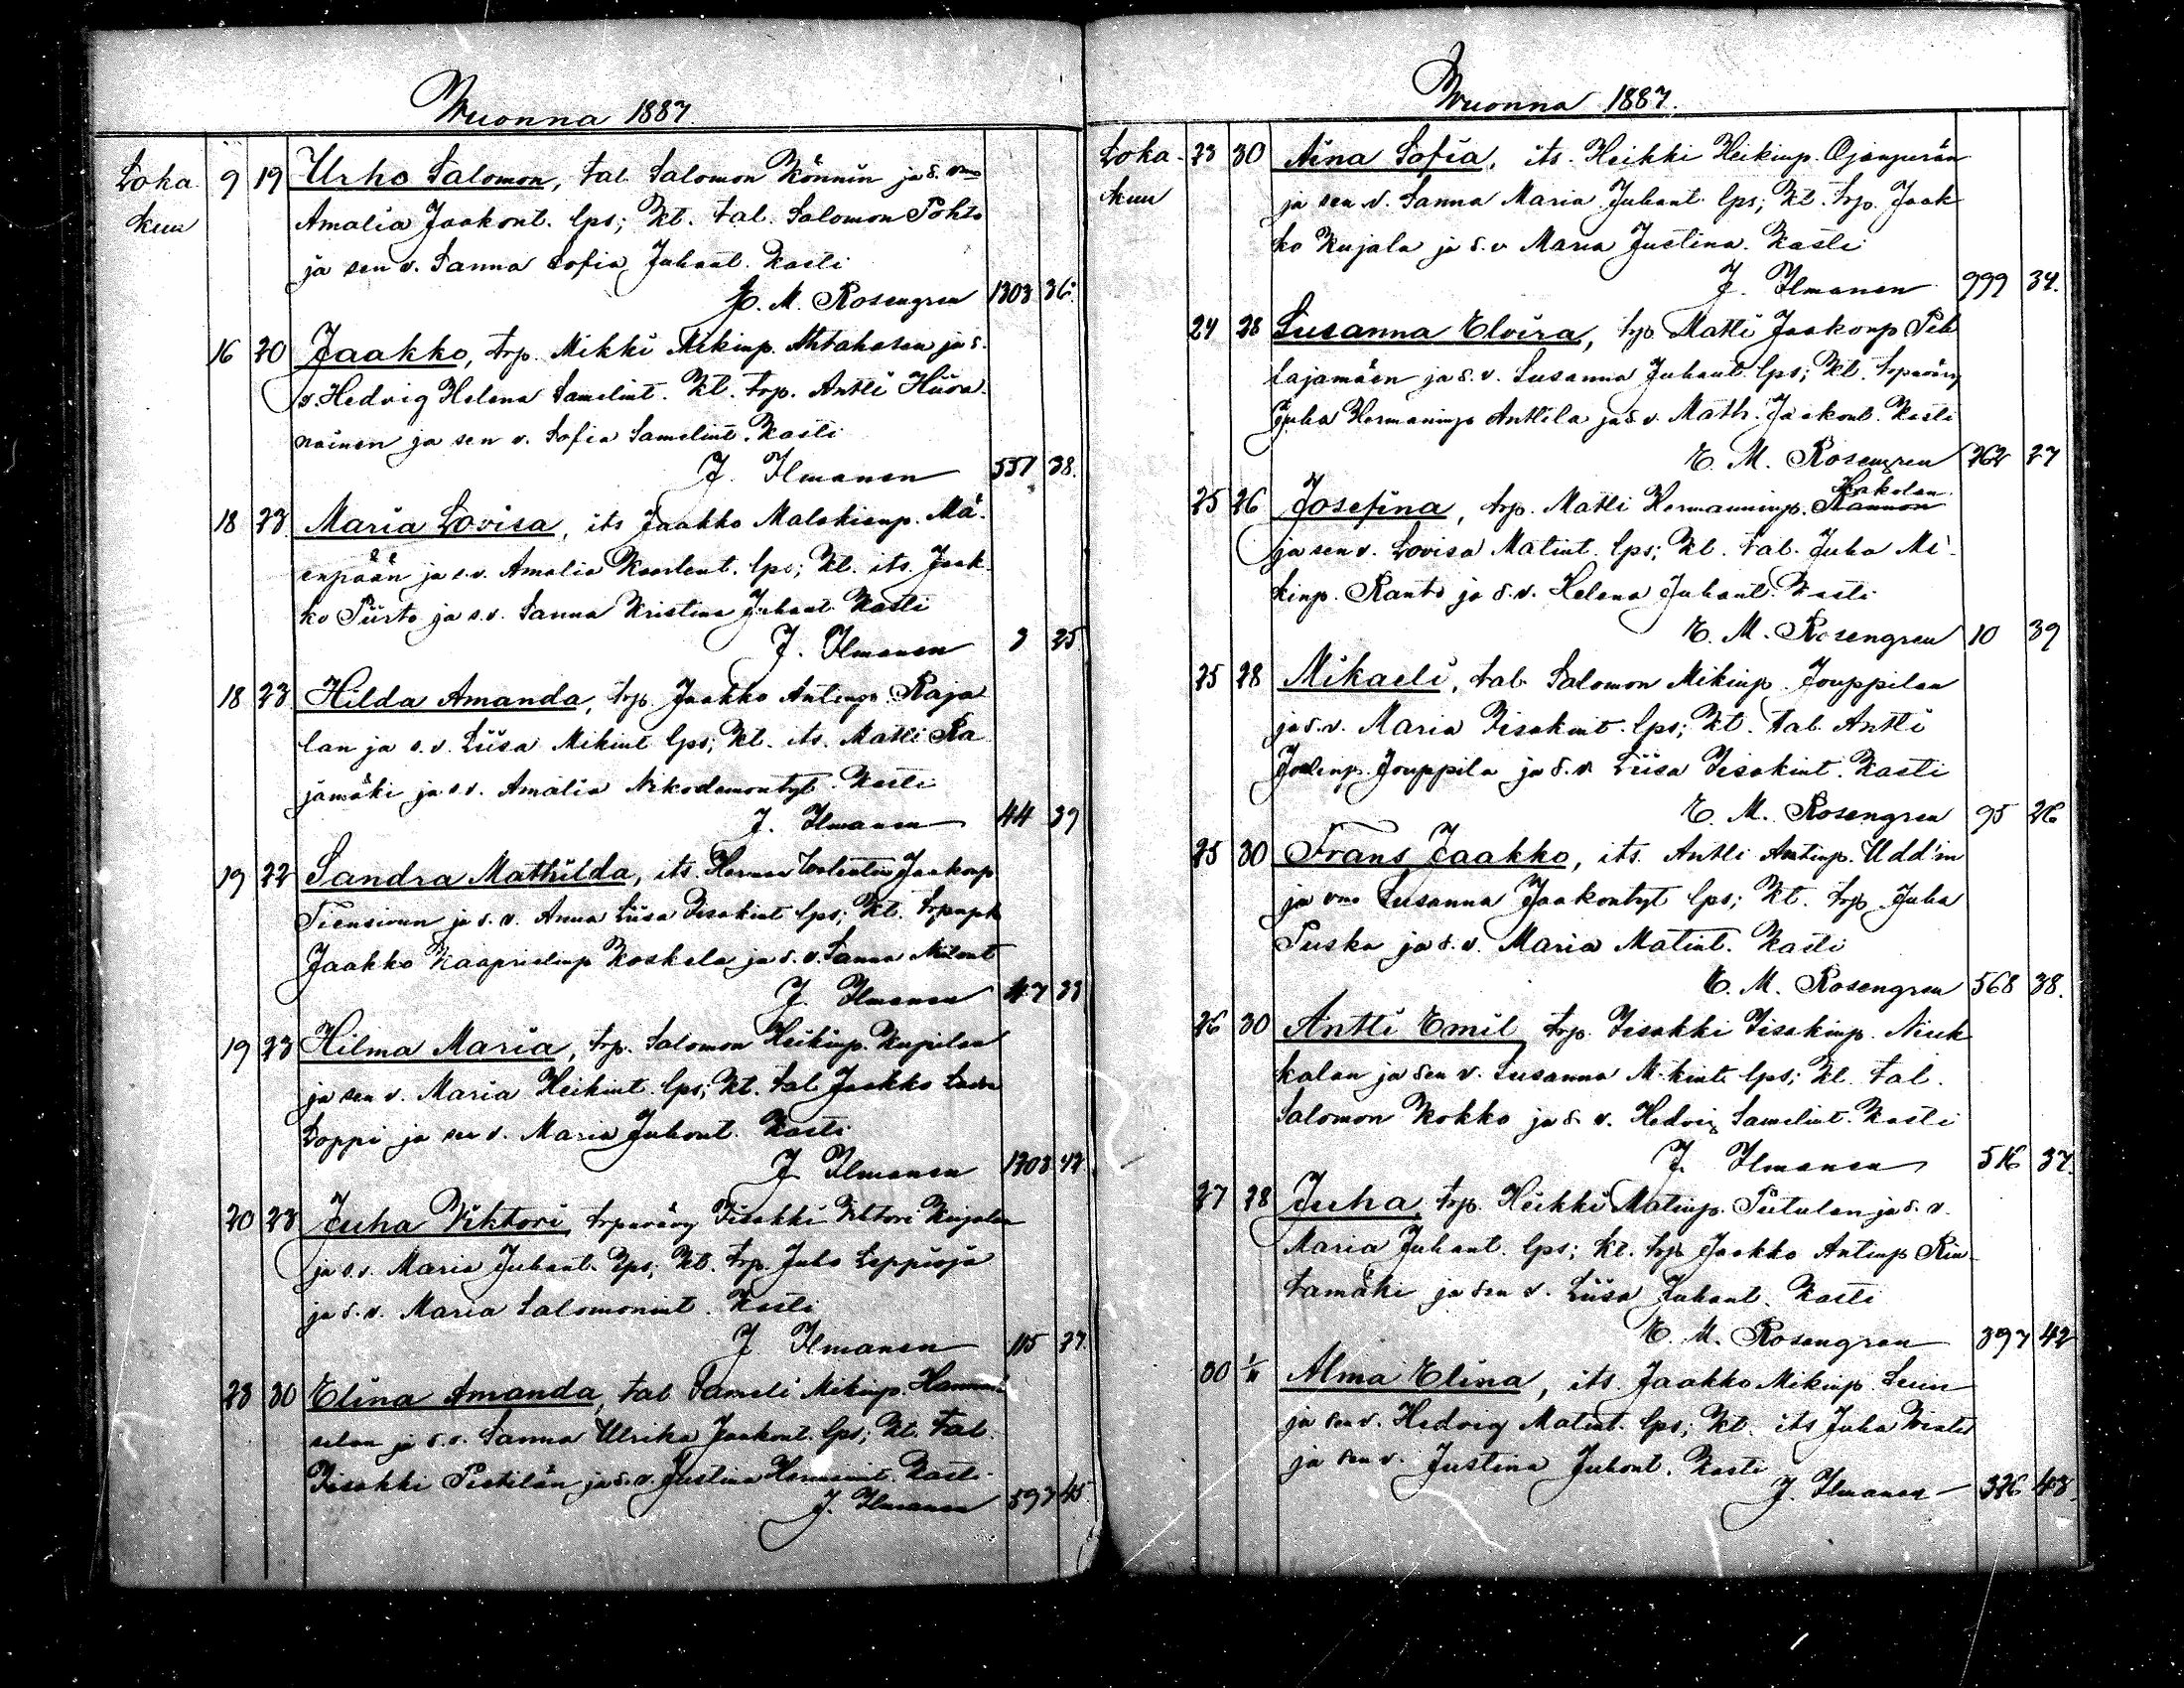 Wuonna 1887.
Loka 9 19 Urho Salomon, tal. Salomon Könnin ja s. vmo
kuu Amalia Jaakont. lps; Kt. tal. Salomon Pohto
ja sen v. Sanna Sofia Juhant. Kasti
E. M. Rosengren 1303 36.
16 20 Jaakko, trp. Mikki Mikinp. ja s.
v. Hedvig Helena Samelint. Kt. trp. Antti Hiiva-
nainen ja sen v. Sofia Samelint. Kasti
J. Ilmanen 551 38.
18 23 Maria Lovisa, its Jaakko Malakianp. Mä-
enpään ja s.v. Amalia Kaarlent. lps; Kt. its. Jaak-
ko Piirto ja s.v. Sanna Kristina Juhant. Kasti
J. Ilmanen 3 25.
18 23 Hilda Amanda, trp. Jaakko Antinp. Raja-
lan ja s.v. Liisa Mikint lps; Kt. its. Matti Ra-
jamäki ja s.v. Amalia Nikodemontyt. Kasti
J. Ilmanen 44 39
19 22 Sandra Mathilda, its. Herman Jaakonp
ja s. v. Anna Liisa Iisakint lps; Kt.
Jaakko Kaaprielinp Koskela ja s.v. Sanna
J. Ilmanen 47 33
19 23 Hilma Maria, trp. Salomon Heikinp. Kujalan
ja sen v. Maria Heikint. lps; Kt. tal. Jaakko
Loppi ja sen v. Maria Juhont. Kasti
J. Ilmanen 1303 42
20 23 Juha Viktori, trpvävy Iisakki Viktori Kujalan
ja s.v. Maria Juhant. lps; Kt. trp. Juho Leppioja
ja s.v. Maria Salomonint. Kasti
J. Ilmanen 115 27.
23 30 Elina Amanda, tal Sameli Mikinp. Hannuk-
selan ja s.v. Sanna Ulrika Jaakont. lps; Kt. tal.
Iisakki Pietilän ja s.v. Justina Hermanint. Kasti
J. Ilmanen 593 45.
Wuonna 1887.
Loka- 23 30 Aina Sofia, its. Heikki Heikinp. Ojanperän
kuu ja sen v. Sanna Maria Juhant. lps; Kt. trp. Jaak-
ko Kujala ja s.v Maria Justina. Kasti
J. Ilmanen 999 34.
24 28 Susanna Elvira, trp. Matti Jaakonp
lajamäen ja s.v. Susanna Juhant. lps; Kt. trpvävy
Juha Hermaninp Anttila ja s v. Math. Jaakont. Kasti
E. M. Rosengren 262 27
Hakolan
25 26 Josefina, trp. Matti Hermanninp. Rannon
ja sen v. Lovisa Matint. lps; Kt. tal. Juha Mi-
kinp. Ranto ja s.v. Helena Juhant. Kasti
E. M. Rosengren 10 39
25 28 Mikaeli, tal. Salomon Mikinp. Jouppilan
ja s.v. Maria Iisakint. lps; Kt. tal. Antti
Joelinp. Jouppila ja s.v. Liisa Iisakint. Kasti
E. M. Rosengren 95 26
25 30 Frans Jaakko, its. Antti Antinp. Udd'in
ja vmo Susanna Jaakontyt lps; Kt. trp. Juha
Puska ja s.v. Maria Matint. Kasti
E. M. Rosengren 568 38.
26 30 Antti Emil, trp. Iisakki Iisakinp. Niuk-
kalan ja sen v. Susanna Mikint. lps; Kt. tal.
Salomon Kokko ja s. v. Hedvig Samelint. Kasti
J. Ilmanen 516 37.
27 28 Juha, trp. Heikki Matinp. Piitulan ja s. v.
Maria Juhant. lps; Kt. trp Jaakko Antinp Rin-
tamäki ja sen v. Liisa Juhant. Kasti
E. M. Rosengren 397 42
30 1/11 Alma Elina, its. Jaakko Mikinp. Luun
ja sen v. Hedvig Matint. lps; Kt. its Juha
ja sen v. Justina Juhont. Kasti
J. Ilmanen 326 43.